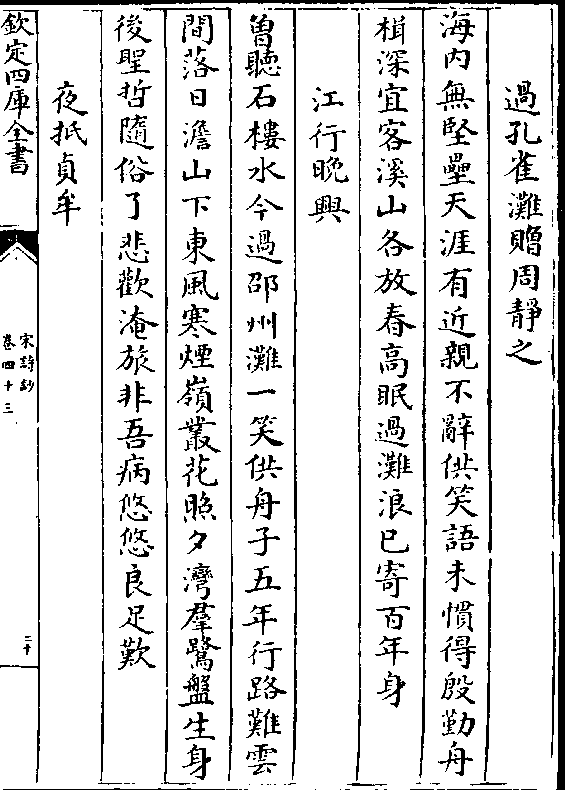 過孔雀灘贈周靜之
海内無堅壘天涯有近親不辭供笑語未慣得殷勤舟
楫深宜客溪山各放春高眠過灘浪已寄百年身
江行晚興
曽聽石樓水今過邵州灘一笑供舟子五年行路難雲
間落日澹山下東風寒煙嶺叢花照夕灣羣鷺盤生身
後聖哲隨俗了悲歡淹旅非吾病悠悠良足歎
夜抵貞牟
欽定四庫全書
宋詩鈔
卷四十三
二十